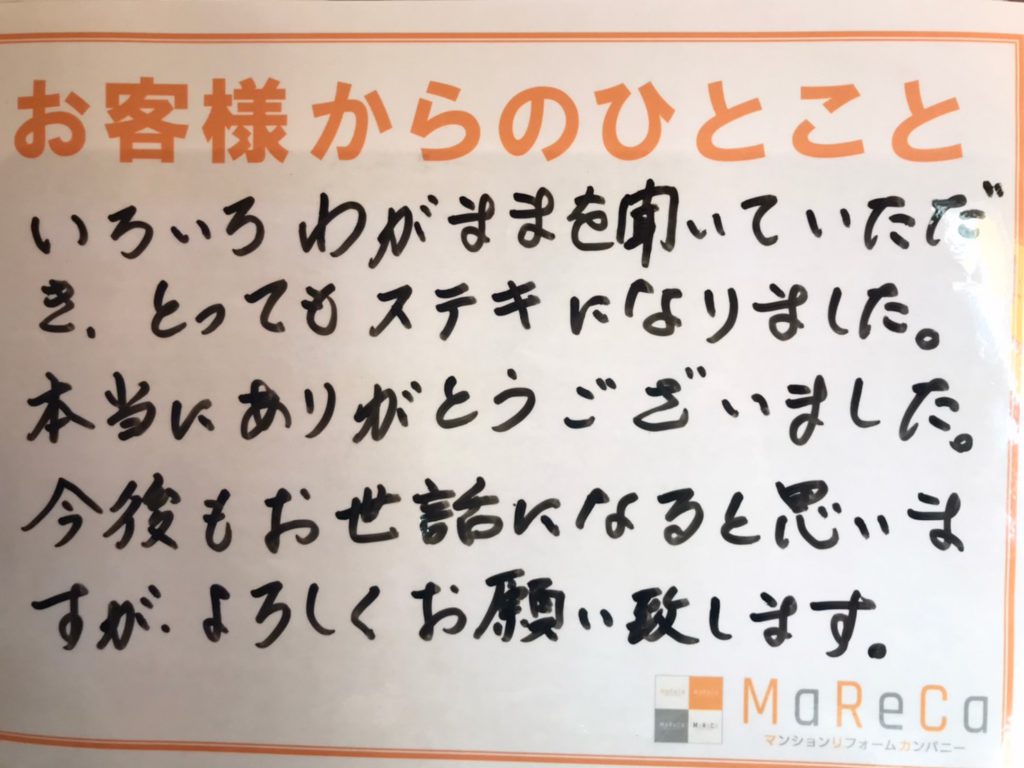 お客様からのひとこと
いろいろわがままを聞いていただ
き、とってもステキになりました。
本当にありがとうございました。
今後もお世話になると思いま
すが、よろしくお願い致します。
MaReCa
マンションリフォームカンパニー